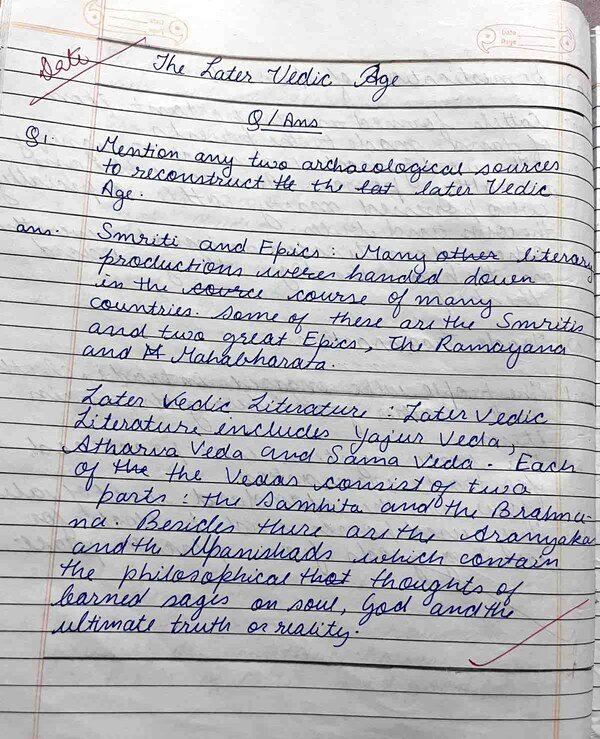 Date
Page
Date
The Later Vedic Age
Q/Ans
Q1. Mention any two archaeological sources
to reconstruct the the lat later Vedic
Age.
ans. Smriti and Epics : Many other literary
productions weres handed down
in the cource course of many
countries. Some of these are the Smritis
and two great Epics, The Ramayana
and M Mahabharata.
Later Vedic Literature : Later Vedic
Literature includes Yajur Veda,
Atharva Veda and Sama Veda. Each
of the the Vedas consist of two
parts : the Samhita and the Brahma-
na. Besides there are the Aranyaka
and the Upanishads which contain
the philosophical that thoughts of
learned sages on soul, God and the
ultimate truth or reality.